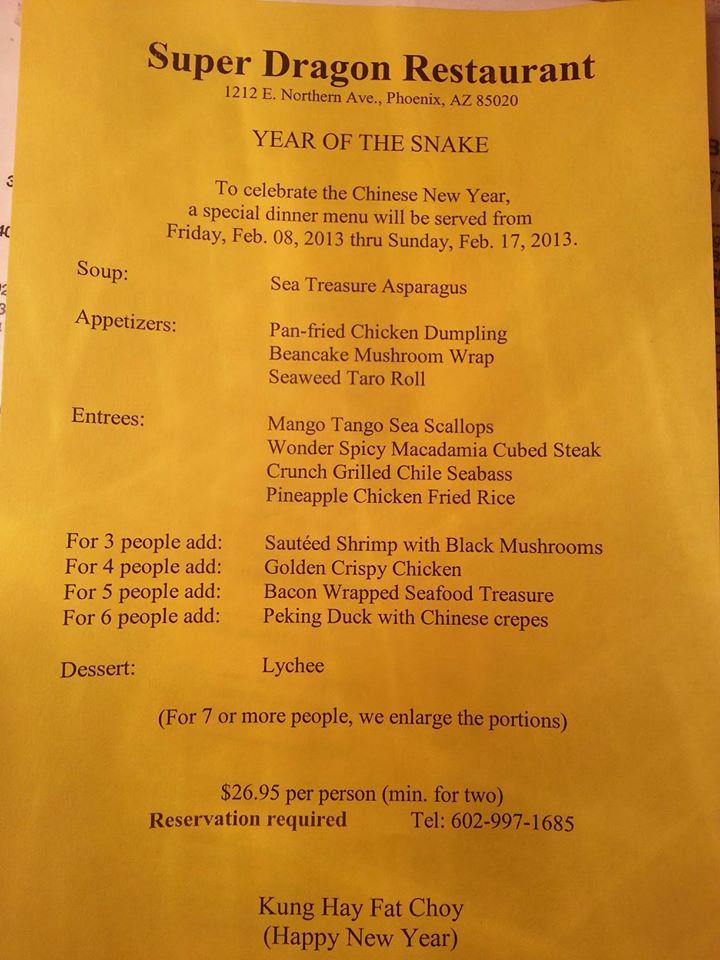 Super Dragon Restaurant
1212 E. Northern Ave., Phoenix, AZ 85020
YEAR OF THE SNAKE
To celebrate the Chinese New Year,
a special dinner menu will be served from
Friday, Feb. 08, 2013 thru Sunday, Feb. 17, 2013.
Soup: Sea Treasure Asparagus
Appetizers: Pan-fried Chicken Dumpling
Beancake Mushroom Wrap
Seaweed Taro Roll
Entrees: Mango Tango Sea Scallops
Wonder Spicy Macadamia Cubed Steak
Crunch Grilled Chile Seabass
Pineapple Chicken Fried Rice
For 3 people add: Sautéed Shrimp with Black Mushrooms
For 4 people add: Golden Crispy Chicken
For 5 people add: Bacon Wrapped Seafood Treasure
For 6 people add: Peking Duck with Chinese crepes
Dessert: Lychee
(For 7 or more people, we enlarge the portions)
$26.95 per person (min. for two)
Reservation required Tel: 602-997-1685
Kung Hay Fat Choy
(Happy New Year)